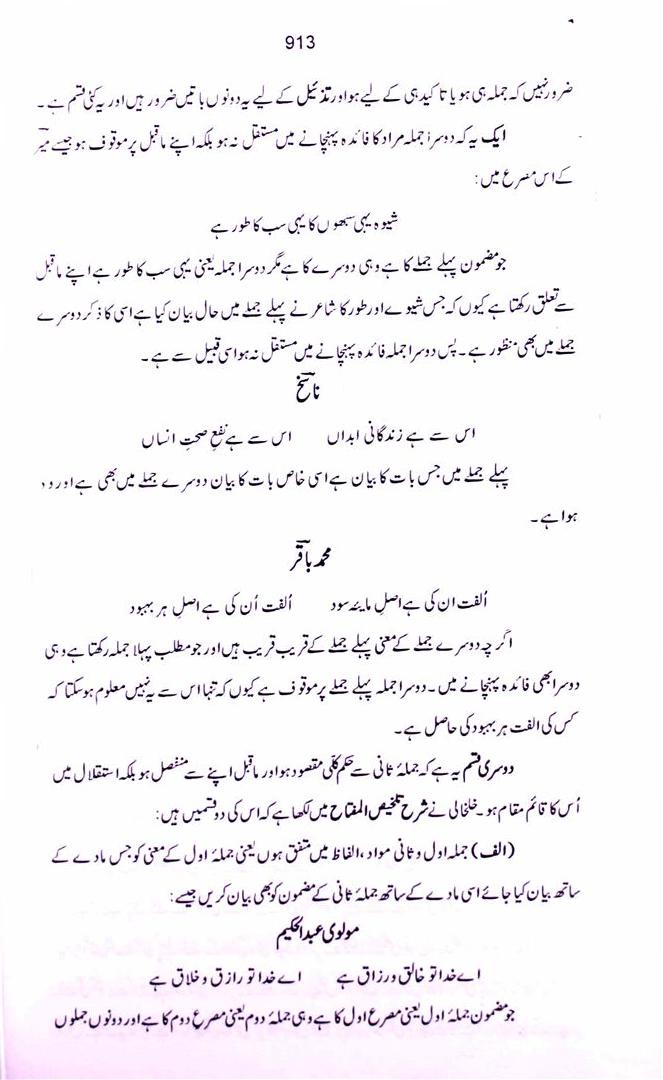 913
ضرور نہیں کہ جملہ ہی ہو یا تاکید ہی کے لیے ہو اور تذئیل کے لیے یہ دونوں باتیں ضرور ہیں اور یہ کئی قسم ہے۔
ایک یہ کہ دوسرا جملہ مراد کا فائدہ پہنچانے میں مستقل نہ ہو بلکہ اپنے ماقبل پر موقوف ہو جیسے میرؔ
کے اس مصرع میں:
شیوہ یہی سبھوں کا یہی سب کا طور ہے
جو مضمون پہلے جملے کا ہے وہی دوسرے کا ہے مگر دوسرا جملہ یعنی یہی سب کا طور ہے اپنے ماقبل
سے تعلق رکھتا ہے کیوں کہ جس شیوے اور طور کا شاعر نے پہلے جملے میں حال بیان کیا ہے اسی کا ذکر دوسرے
جملے میں بھی منظور ہے۔ پس دوسرا جملہ فائدہ پہنچانے میں مستقل نہ ہوا اسی قبیل سے ہے۔
ناسخؔ
اس سے ہے زندگانی ابداں اس سے ہے نفعِ صحتِ انساں
پہلے جملے میں جس بات کا بیان ہے اسی خاص بات کا بیان دوسرے جملے میں بھی ہے اور
ہوا ہے۔
محمد باقرؔ
اُلفت ان کی ہے اصلِ مایئہ سود اُلفت اُن کی ہے اصلِ ہر بہبود
اگرچہ دوسرے جملے کے معنی پہلے جملے کے قریب قریب ہیں اور جو مطلب پہلا جملہ رکھتا ہے وہی
دوسرا بھی فائدہ پہنچانے میں۔ دوسرا جملہ پہلے جملے پر موقوف ہے کیوں کہ تنہا اس سے یہ نہیں معلوم ہو سکتا کہ
کس کی الفت ہر بہبود کی حاصل ہے۔
دوسری قسم یہ ہے کہ جملۂ ثانی سے حکم کلّی مقصود ہو اور ماقبل اپنے سے منفصل ہو بلکہ استقلال میں
اُس کا قائم مقام ہو۔ خلخالی نے شرح تلخیص المفتاح میں لکھا ہے کہ اس کی دو قسمیں ہیں:
(الف) جملہ اول و ثانی مواد، الفاظ میں متفق ہوں یعنی جملۂ اول کے معنی کو جس مادے کے
ساتھ بیان کیا جائے اسی مادے کے ساتھ جملۂ ثانی کے مضمون کو بھی بیان کریں جیسے:
مولوی عبدالحکیم
اے خدا تو خالق و رزاق ہے اے خدا تو رازق و خلاق ہے
جو مضمون جملۂ اول یعنی مصرع اول کا ہے وہی جملۂ دوم یعنی مصرع دوم کا ہے اور دونوں جملوں